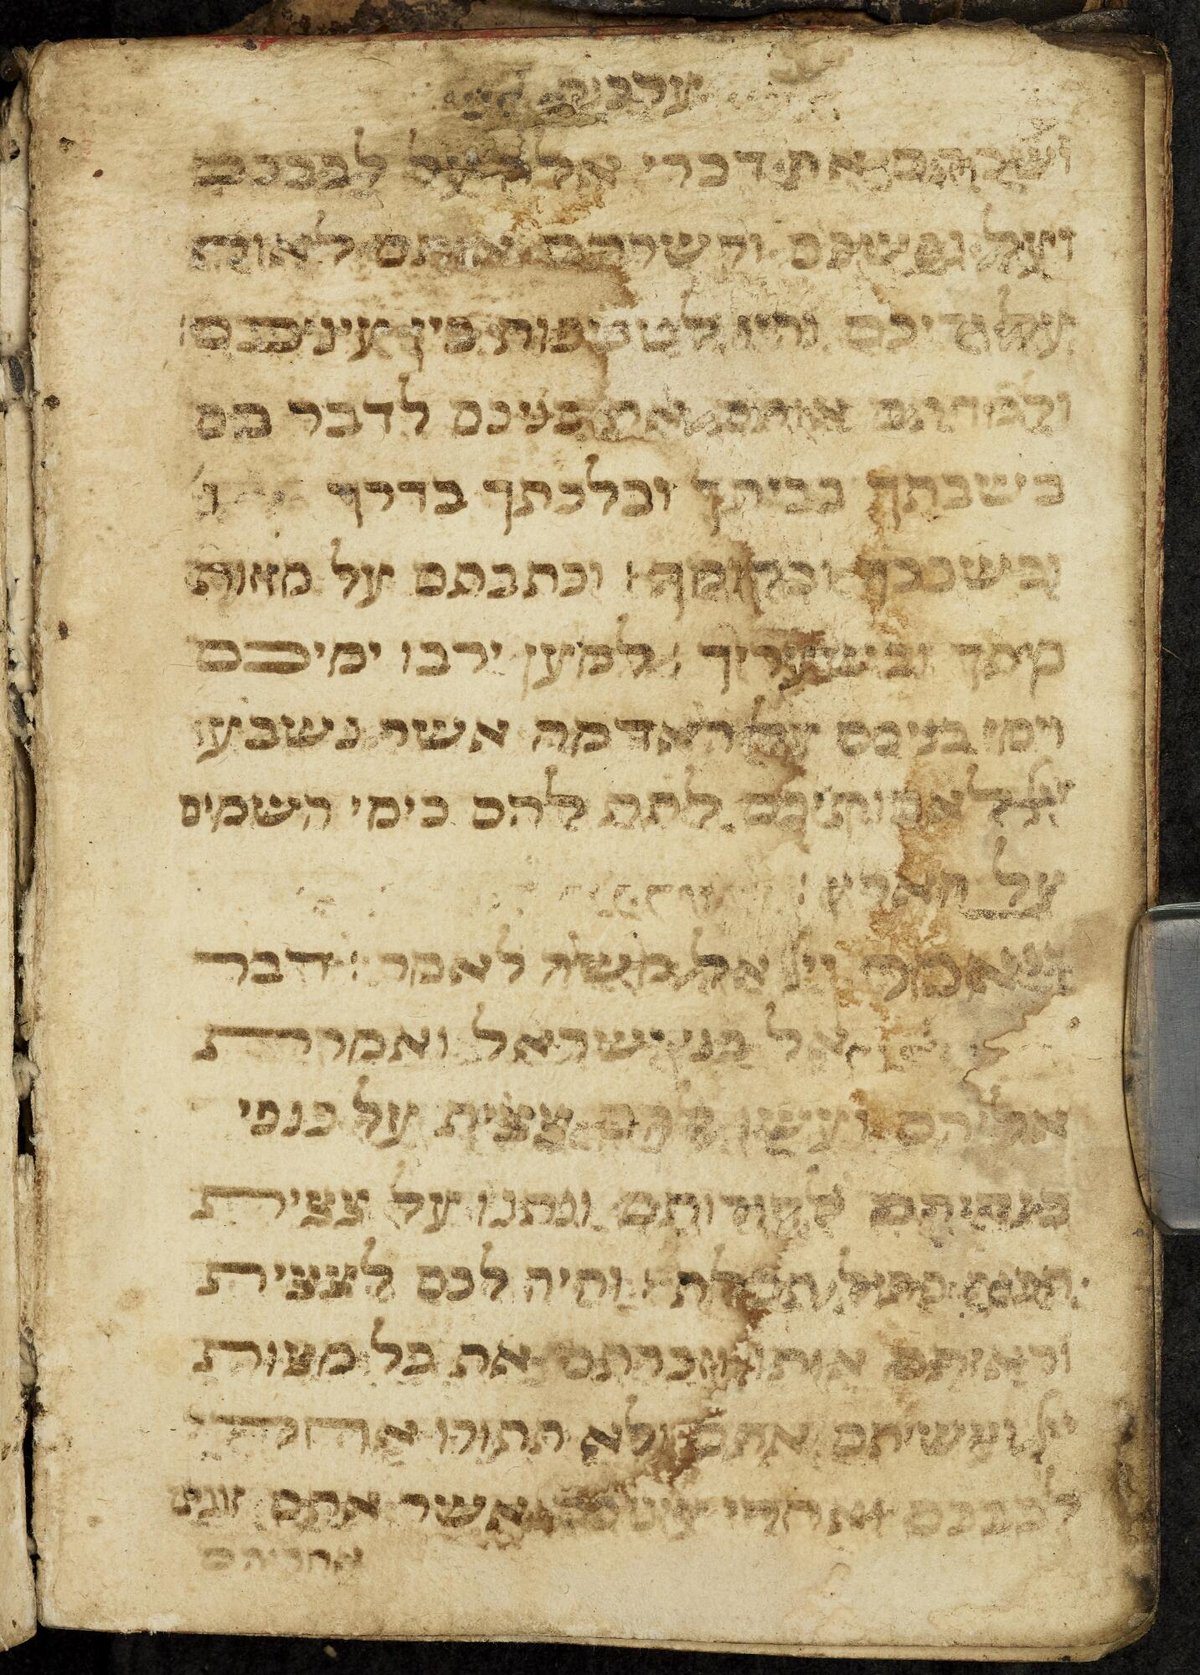 ושמתם את דברי אלה על לבבכם
ועל נפשכם וקשרתם אתם לאות
על ידיכם והיו לטטפות בין עיניכם
ולמדתם אותם את בניכם לדבר בם
בשבתך בביתך ובלכתך בדרך
ובשכבך ובקומך : וכתבתם על מזוזות
ביתך ובשעריך : למען ירבו ימיכם
וימי בניכם על האדמה אשר נשבע
לאבותיכם לתת להם כימי השמים
על הארץ :
ויאמר ייי אל משה לאמר : דבר
אל בני ישראל ואמרת
אליהם ועשו להם ציצית על כנפי
בגדיהם לדורותם ונתנו על ציצית
הכנף פתיל תכלת : והיה לכם לציצית
וראיתם אותו וזכרתם את כל מצות
ייי ועשיתם אתם ולא תתורו אחרי
לבבכם ואחרי עיניכם אשר אתם זונים
אחריהם